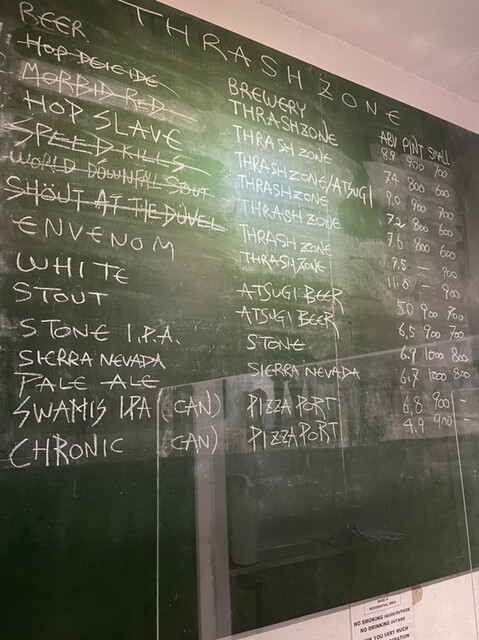 THRASH ZONE
BEER BREWERY ABV PINT SMALL
HOP DEICIDE THRASHZONE 8.9 900 700
MORBID RED THRASHZONE 7.4 800 600
HOP SLAVE THRASHZONE/ATSUGI 9.0 900 700
SPEED KILLS THRASHZONE 7.2 800 600
WORLD DOWNFALL STOUT THRASHZONE 7.6 800 600
SHÖUT AT THE DÜVEL THRASHZONE 9.5 — 900
ENVENOM THRASHZONE 11.0 — 900
WHITE ATSUGI BEER 5.0 900 700
STOUT ATSUGI BEER 6.5 900 700
STONE I.P.A. STONE 6.9 1000 800
SIERRA NEVADA SIERRA NEVADA 6.7 1000 800
PALE ALE
SWAMIS IPA (CAN) PIZZA PORT 6.8 900 -
CHRONIC (CAN) PIZZA PORT 4.9 900 -
RESIDENTIAL AREA
NO SMOKING INSIDE/OUTSIDE
NO DRINKING OUTSIDE
YOU VERY MUCH